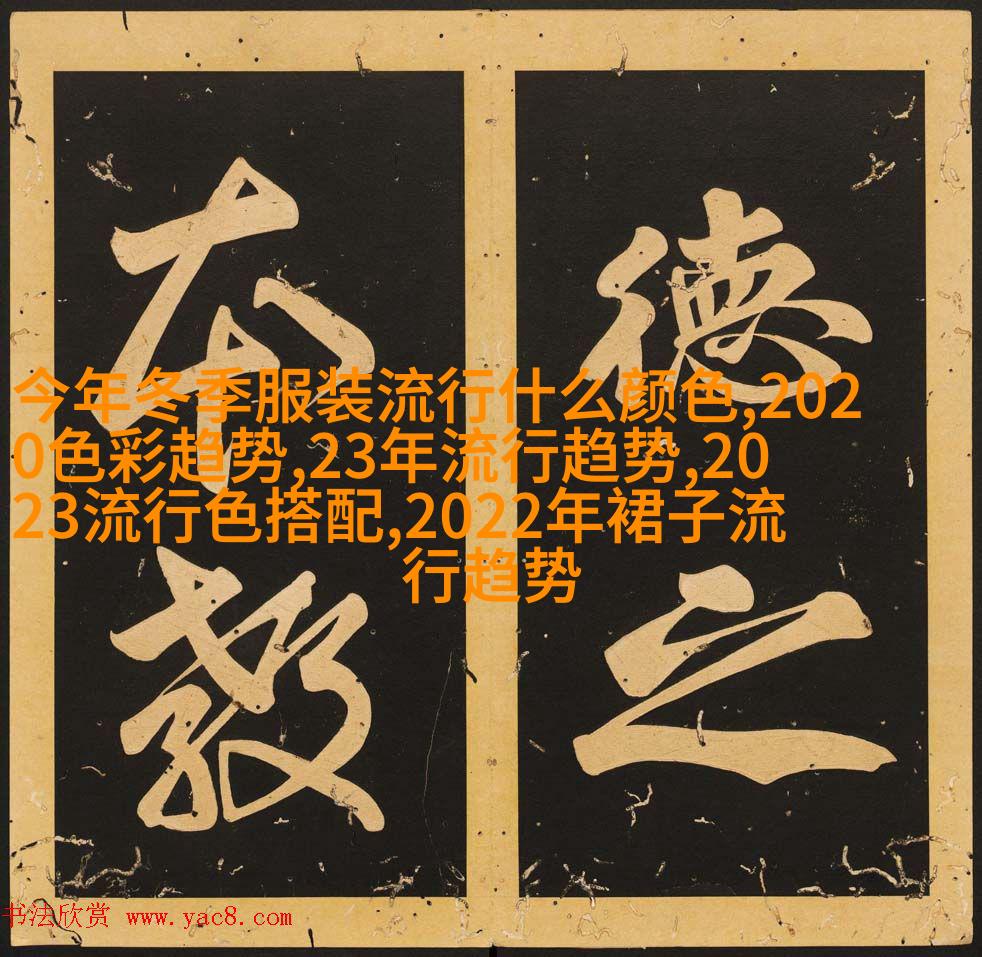 德之
本教
今年冬季服装流行什么颜色,202
0色彩趋势,23年流行趋势,20
23流行色搭配,2022年裙子流
行趋势
书法欣赏 www.yac8.com